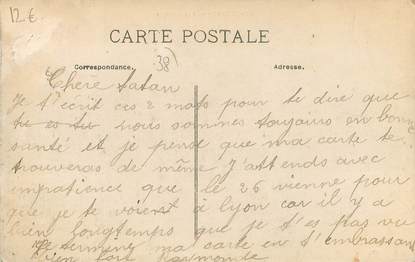 12 €
CARTE POSTALE
Correspondance.
38)
Adresse.
Chère tatan
Je t'écrit ces 2 mots pour te dire que
tu es tu nous sommes toujours en bonne
santé et je pense que ma carte te
trouveras de même J'attends avec
impatience que le 26 vienne pour
que je te voient à Lyon car il y a
bien longtemps que je t'es pas vu
Je termine ma carte en t'embrassant
bien fort Raymonde